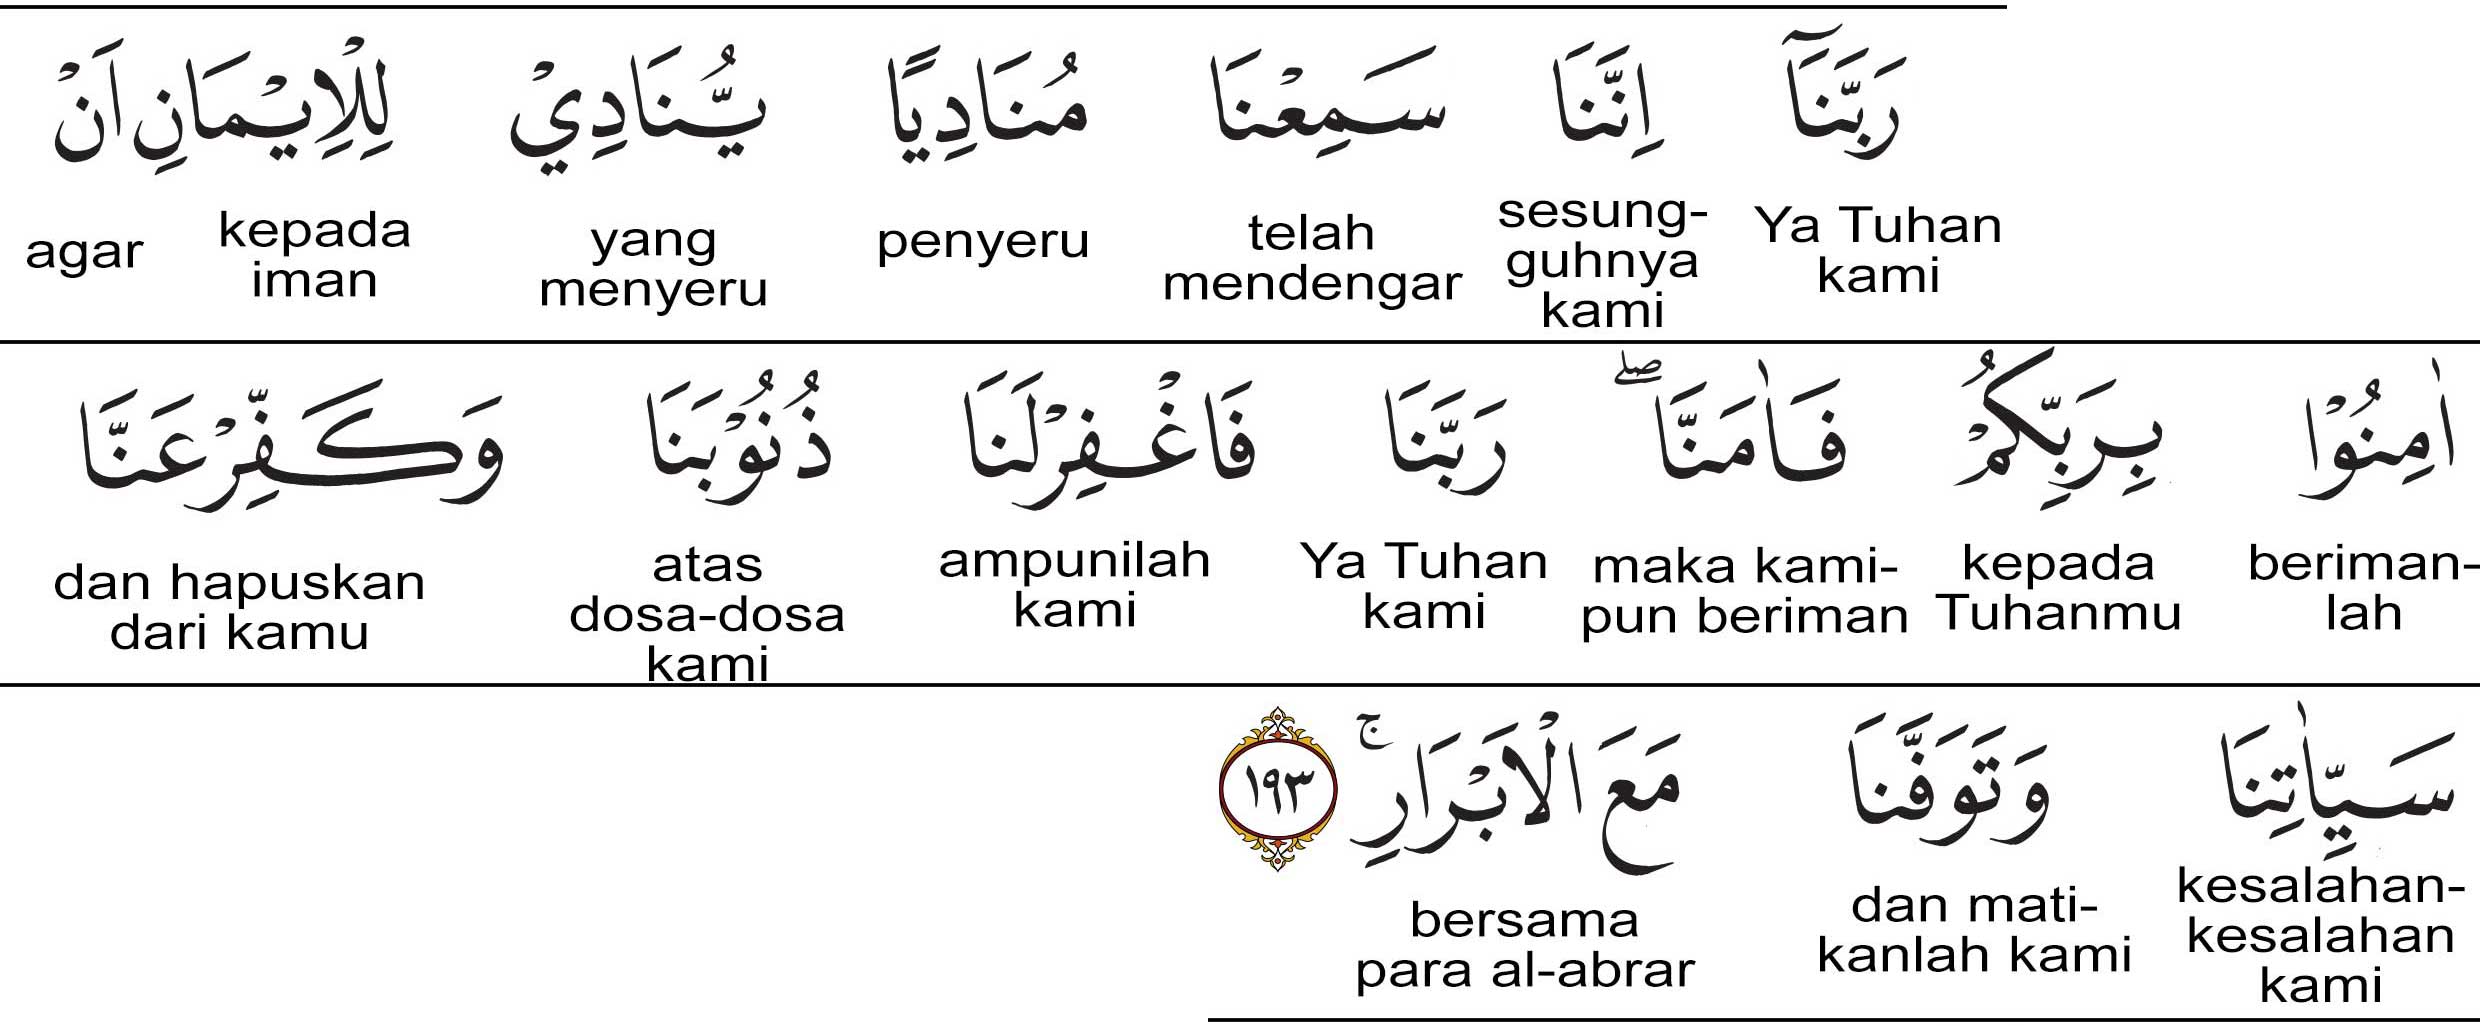 رَبَّنَآ اِنَّنَا سَمِعْنَا مُنَادِيًا يُّنَادِيْ لِلْاِيْمَانِ اَنْ
Ya Tuhan kami
sesung-guhnya kami
telah mendengar
penyeru
yang menyeru
kepada iman
agar
اٰمِنُوْا بِرَبِّكُمْ فَاٰمَنَّا ۖ رَبَّنَا فَاغْفِرْلَنَا ذُنُوْبَنَا وَكَفِّرْعَنَّا
beriman-lah
kepada Tuhanmu
maka kami-pun beriman
Ya Tuhan kami
ampunilah kami
atas dosa-dosa kami
dan hapuskan dari kamu
سَيِّاٰتِنَا وَتَوَفَّنَا مَعَ الْاَبْرَارِۚ ١٩٣
kesalahan-kesalahan kami
dan mati-kanlah kami
bersama para al-abrar